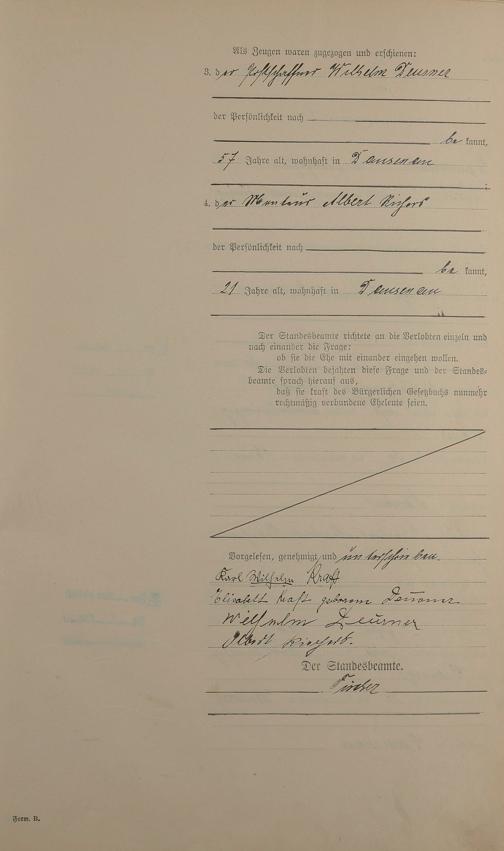 Als Zeugen waren zugezogen und erschienen:
3. der Postschaffner Wilhelm Deusner
der Persönlichkeit nach
be kannt,
57 Jahre alt, wohnhaft in Dausenau
4. der Monteur Albert
der Persönlichkeit nach
be kannt,
21 Jahre alt, wohnhaft in Dausenau
Der Standesbeamte richtete an die Verlobten einzeln und
nach einander die Frage:
ob sie die Ehe mit einander eingehen wollen.
Die Verlobten bejahten diese Frage und der Standes-
beamte sprach hierauf aus,
daß sie kraft des Bürgerlichen Gesetzbuchs nunmehr
rechtmäßig verbundene Eheleute seien.
Vorgelesen, genehmigt und unterschrieben.
Karl Wilhelm Kraft
Elisabeth Kraft geborene Deusner
Wilhelm Deusner
Albert
Der Standesbeamte.
Form. B.